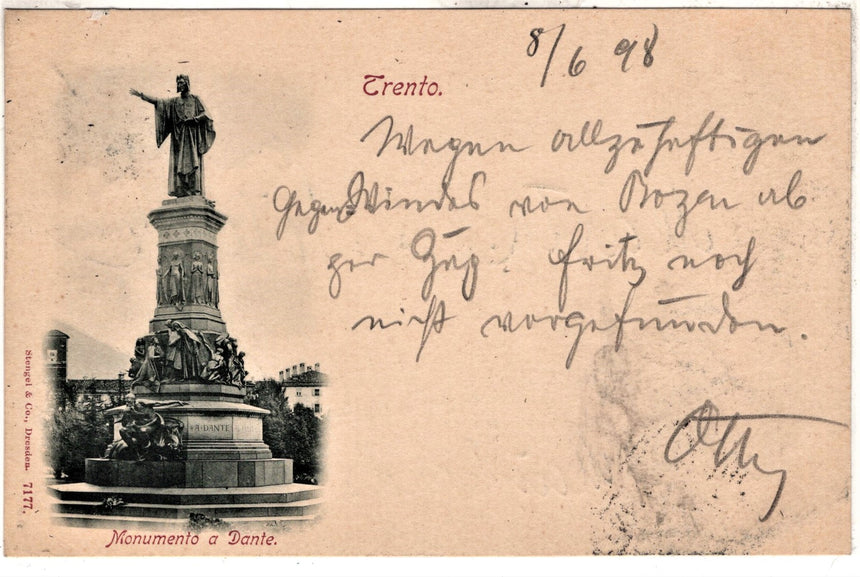 8/6 98
Trento.
Wegen allzuheftigen
Gegen Windes von Bozen ab
per Zug. Fritz noch
nicht vorgefunden.
Otto
A·DANTE
Monumento a Dante.
Stengel & Co., Dresden. 7177.